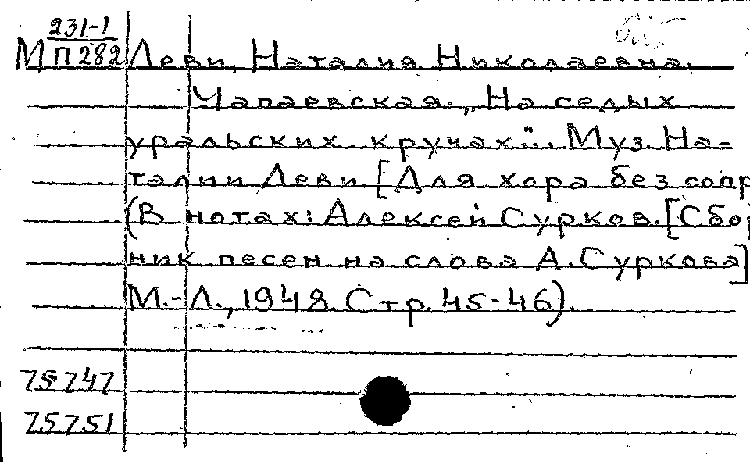 231-1
М П282 Леви, Наталия Николаевна.
Чапаевская. „На седых
уральских кручах"... Муз. На-
талии Леви. [Для хора без сопр
(В нотах: Алексей Сурков. [Сбор
ник песен на слова А. Суркова]
М.-Л., 1948. Стр. 45-46).
75747
75751